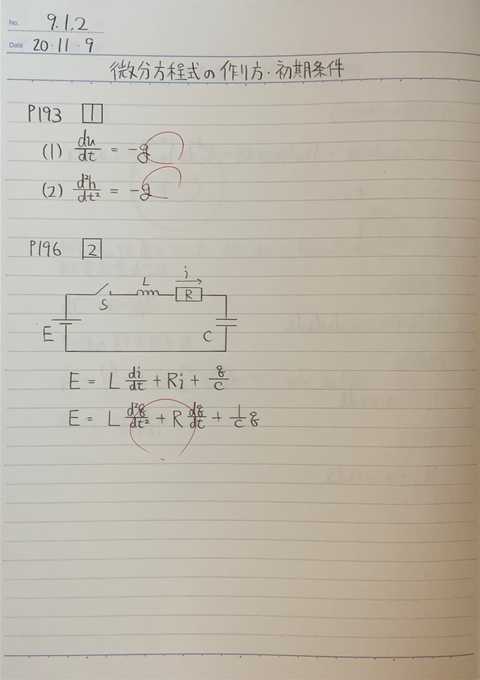 No. 9.1,2
Date 20・11・9
微分方程式の作り方・初期条件
P193 1
(1) du/dt = -g
(2) d²h/dt² = -g
P196 2
L i
S R
E C
E = L di/dt + Ri + q/c
E = L d²q/dt² + R dq/dt + 1/c q